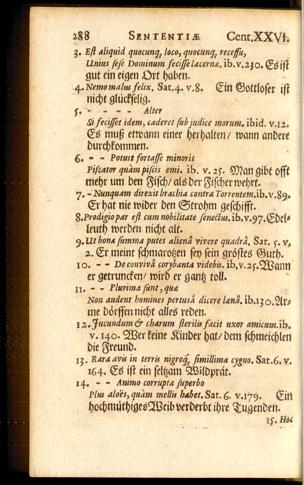 288 SENTENTIÆ Cent.XXVI.
3. Est aliquid quocunq, loco, quocunq, recessu,
Unius sese Dominum fecisse lacerna. ib.v.230. Es ist
gut ein eigen Ort haben.
4. Nemo malus felix. Sat.4. v.8. Ein Gottloser ist
nicht glückselig.
5. - - - - - Alter
Si fecisset idem, caderet sub judice morum. ibid. v.12.
Es muß etwann einer herhalten/ wann andere
durchkommen.
6. - - Potuit fortasse minoris
Piscator quàm piscis emi. ib. v. 25. Man gibt offt
mehr um den Fisch/ als der Fischer wehrt.
7. - Nunquam direxit brachia contra Torrentem. ib.v.89.
Er hat nie wider den Strohm geschifft.
8. Prodigio par est cum nobilitate senectus. ib.v.97. Edel-
leuth werden nicht alt.
9. Ut bona summa putes alienâ vivere quadrâ. Sat. 5. v,
2. Er meint schmarotzen sey sein gröstes Guth.
10. - - De convivâ corybanta videbis. ib.v.25. Wann
er getruncken/ wird er gantz toll.
11. - - Plurima sunt, quæ
Non audent homines pertusâ dicere lænâ. ib.130. Ar-
me dörffen nicht alles reden.
12. Jucundum & charum sterilis facit uxor amicum. ib.
v. 140. Wer keine Kinder hat/ dem schmeichlen
die Freund.
13. Rara avis in terris nigroq, simillima cygno. Sat.6. v.
164. Es ist ein seltzam Wildprät.
14. - - Animo corrupta superbo
Plus aloës, quàm mellis habet. Sat. 6. v.179. Ein
hochmüthiges Weib verderbt ihre Tugenden.
15. Hoc